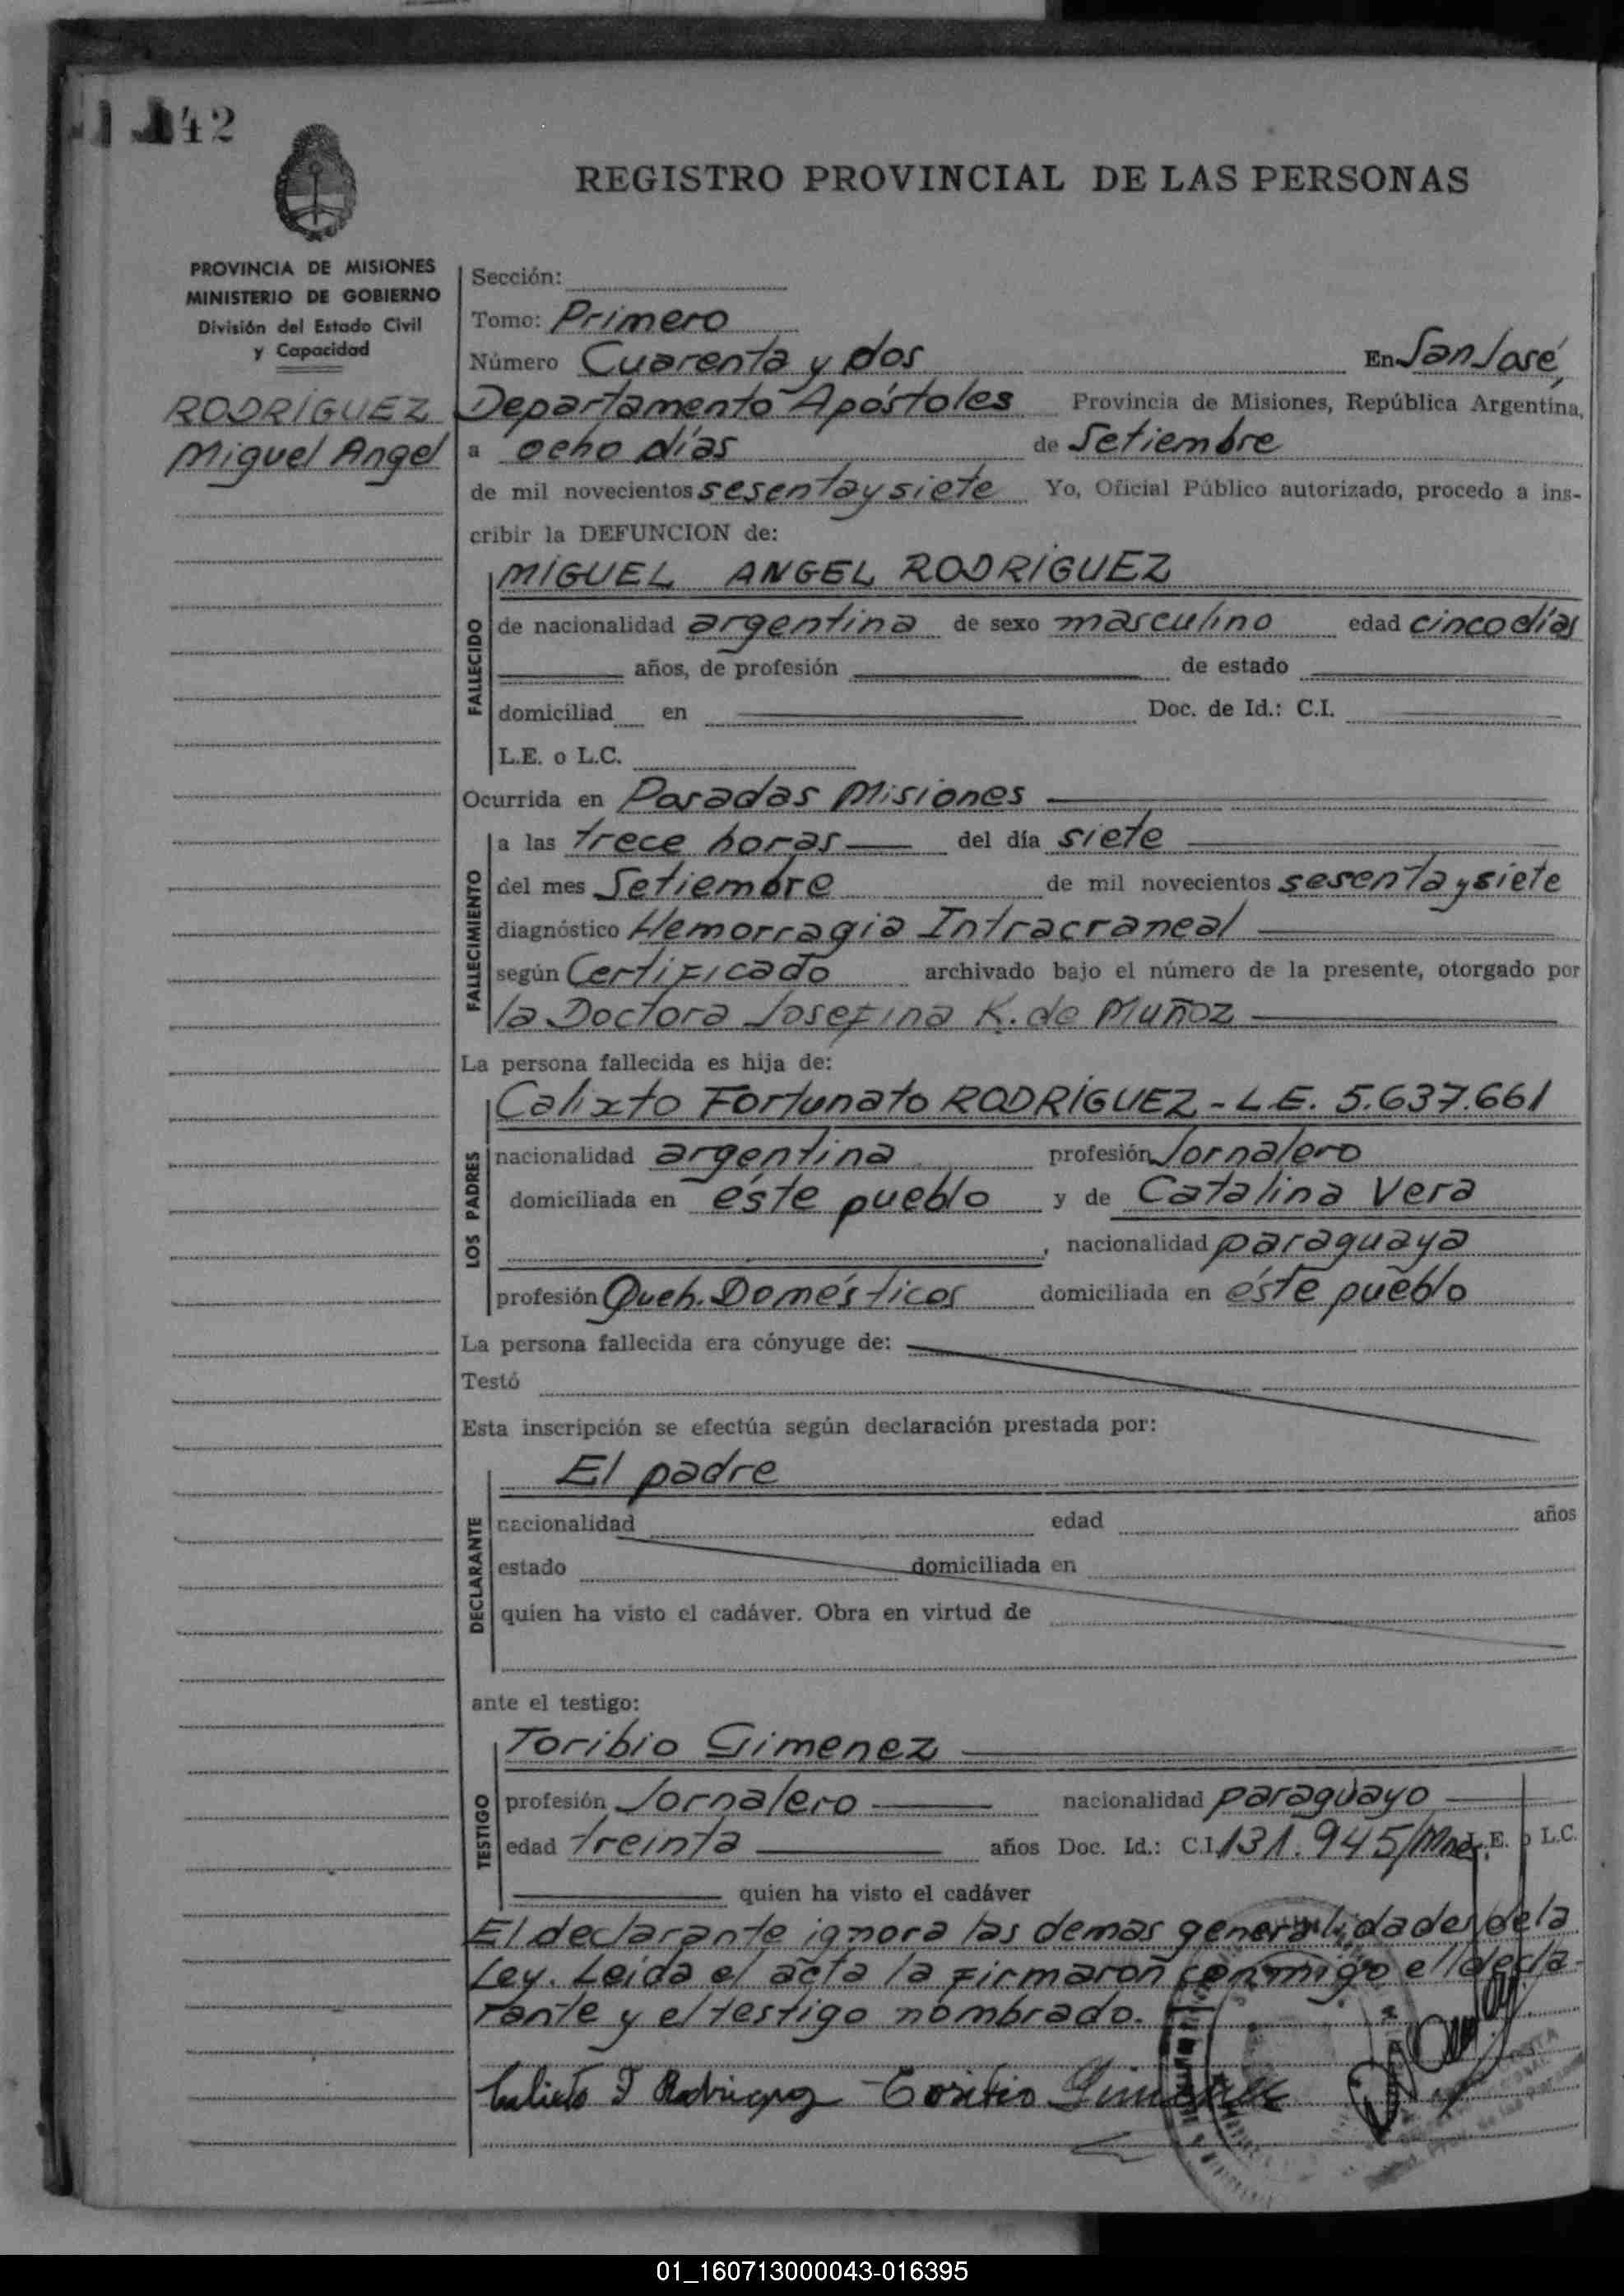 42
REGISTRO PROVINCIAL DE LAS PERSONAS
PROVINCIA DE MISIONES
MINISTERIO DE GOBIERNO
División del Estado Civil
y Capacidad
RODRÍGUEZ
Miguel Angel
Sección:
Tomo: Primero
Número Cuarenta y dos En San José,
Departamento Apóstoles Provincia de Misiones, República Argentina,
a ocho días de Setiembre
de mil novecientos sesenta y siete Yo, Oficial Público autorizado, procedo a ins-
cribir la DEFUNCION de:
FALLECIDO
MIGUEL ANGEL RODRÍGUEZ
de nacionalidad argentina de sexo masculino edad cinco días
años, de profesión de estado
domiciliad en Doc. de Id.: C.I.
L.E. o L.C.
Ocurrida en Posadas Misiones
FALLECIMIENTO
a las trece horas del día siete
del mes Setiembre de mil novecientos sesenta y siete
diagnóstico Hemorragia Intracraneal
según Certificado archivado bajo el número de la presente, otorgado por
la Doctora Josefina K. de Muñoz
La persona fallecida es hija de:
LOS PADRES
Calixto Fortunato RODRÍGUEZ - L.E. 5.637.661
nacionalidad argentina profesión Jornalero
domiciliada en éste pueblo y de Catalina Vera
, nacionalidad paraguaya
profesión Queh. Domésticos domiciliada en éste pueblo
La persona fallecida era cónyuge de:
Testó
Esta inscripción se efectúa según declaración prestada por:
DECLARANTE
El padre
nacionalidad edad años
estado domiciliada en
quien ha visto el cadáver. Obra en virtud de
ante el testigo:
TESTIGO
Toribio Gimenez
profesión Jornalero nacionalidad paraguayo
edad treinta años Doc. Id.: C.I. 131.945/Mnes. L.E. o L.C.
quien ha visto el cadáver
El declarante ignora las demas generalidades de la
Ley. Leida el acta la firmaron conmigo el decla-
rante y el testigo nombrado.
Calixto F Rodriguez Toribio Gimenez
01_160713000043-016395